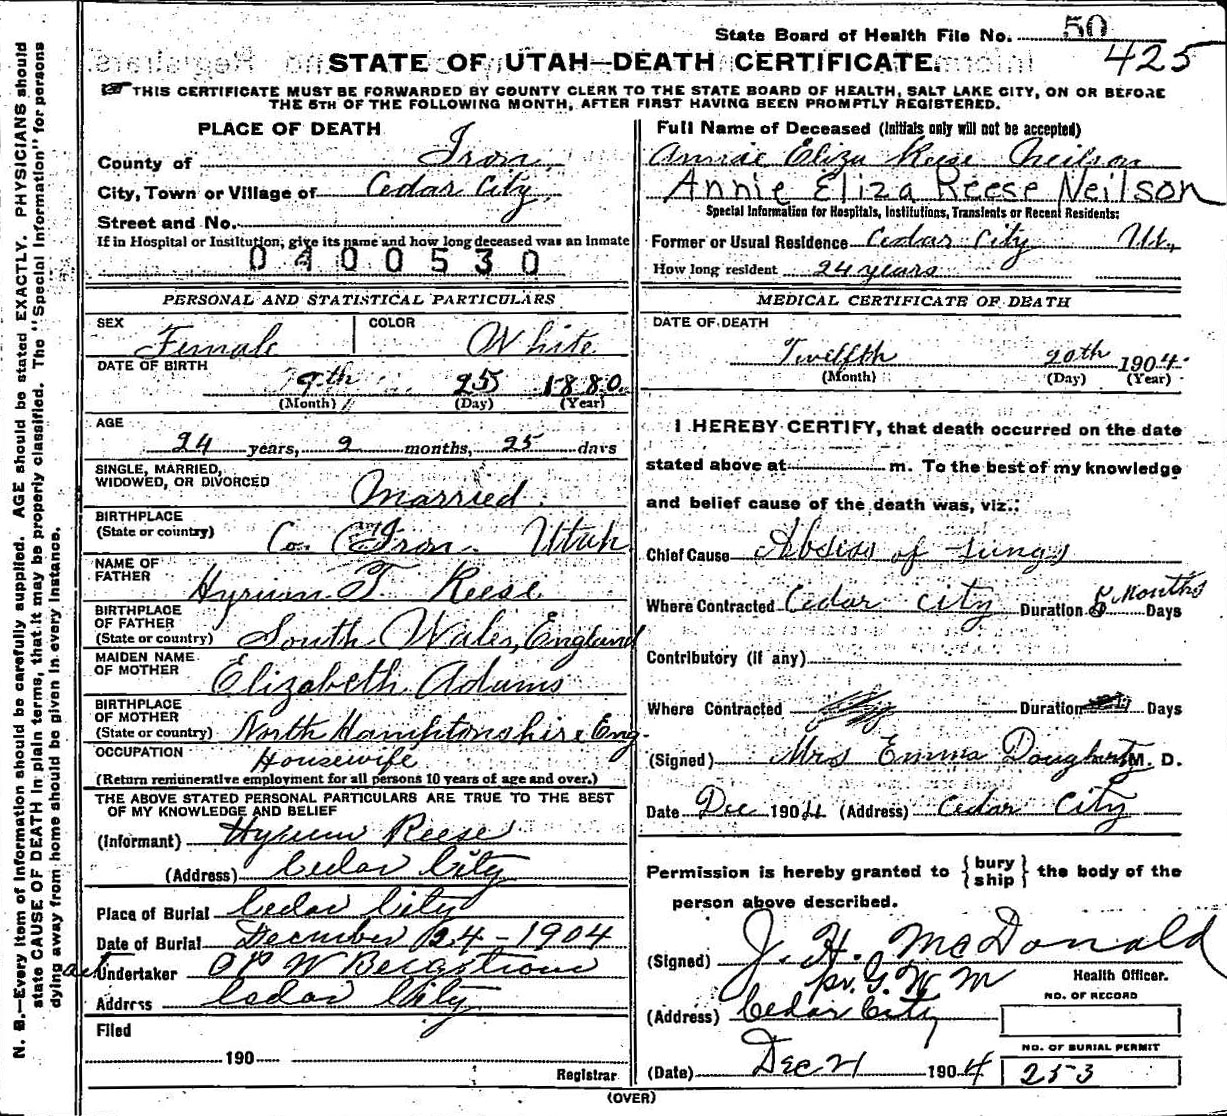 State Board of Health File No. 50
425
STATE OF UTAH—DEATH CERTIFICATE.
THIS CERTIFICATE MUST BE FORWARDED BY COUNTY CLERK TO THE STATE BOARD OF HEALTH, SALT LAKE CITY, ON OR BEFORE
THE 5TH OF THE FOLLOWING MONTH, AFTER FIRST HAVING BEEN PROMPTLY REGISTERED.
N. B.—Every item of information should be carefully supplied. AGE should be stated EXACTLY. PHYSICIANS should
state CAUSE OF DEATH in plain terms, that it may be properly classified. The "Special Information" for persons
dying away from home should be given in every instance.
PLACE OF DEATH
County of Iron
City, Town or Village of Cedar City
Street and No.
If in Hospital or Institution, give its name and how long deceased was an inmate
0400530
PERSONAL AND STATISTICAL PARTICULARS
SEX Female COLOR White
DATE OF BIRTH
9th 25 1880
(Month) (Day) (Year)
AGE
24 years, 2 months, 25 days
SINGLE, MARRIED,
WIDOWED, OR DIVORCED Married
BIRTHPLACE
(State or country) Co. Iron. Utah
NAME OF
FATHER Hyrum T. Reese
BIRTHPLACE
OF FATHER
(State or country) South Wales, England
MAIDEN NAME
OF MOTHER Elizabeth Adams
BIRTHPLACE
OF MOTHER
(State or country) North Hamptonshire Eng.
OCCUPATION Housewife
(Return remunerative employment for all persons 10 years of age and over.)
THE ABOVE STATED PERSONAL PARTICULARS ARE TRUE TO THE BEST
OF MY KNOWLEDGE AND BELIEF
(Informant) Hyrum Reese
(Address) Cedar City
Place of Burial Cedar City
Date of Burial December 24 - 1904
Undertaker W Bergstrom
Address Cedar City
Filed
190
Registrar
Full Name of Deceased (Initials only will not be accepted)
Annie Eliza Reese Neilson
Annie Eliza Reese Neilson
Special Information for Hospitals, Institutions, Transients or Recent Residents:
Former or Usual Residence Cedar City Ut,
How long resident 24 years
MEDICAL CERTIFICATE OF DEATH
DATE OF DEATH
Twelfth 20th 1904
(Month) (Day) (Year)
I HEREBY CERTIFY, that death occurred on the date
stated above at m. To the best of my knowledge
and belief cause of the death was, viz.:
Chief Cause Absess of Lungs
Where Contracted Cedar City Duration Months Days
Contributory (if any)
Where Contracted Duration Days
(Signed) Mrs Emma Dougherty M. D.
Date Dec 1904 (Address) Cedar City
Permission is hereby granted to { bury
ship } the body of the
person above described.
(Signed) J. H. McDonald
pr. G. W. M
Health Officer.
(Address) Cedar City
NO. OF RECORD
NO. OF BURIAL PERMIT
(Date) Dec 21 1904 253
(OVER)